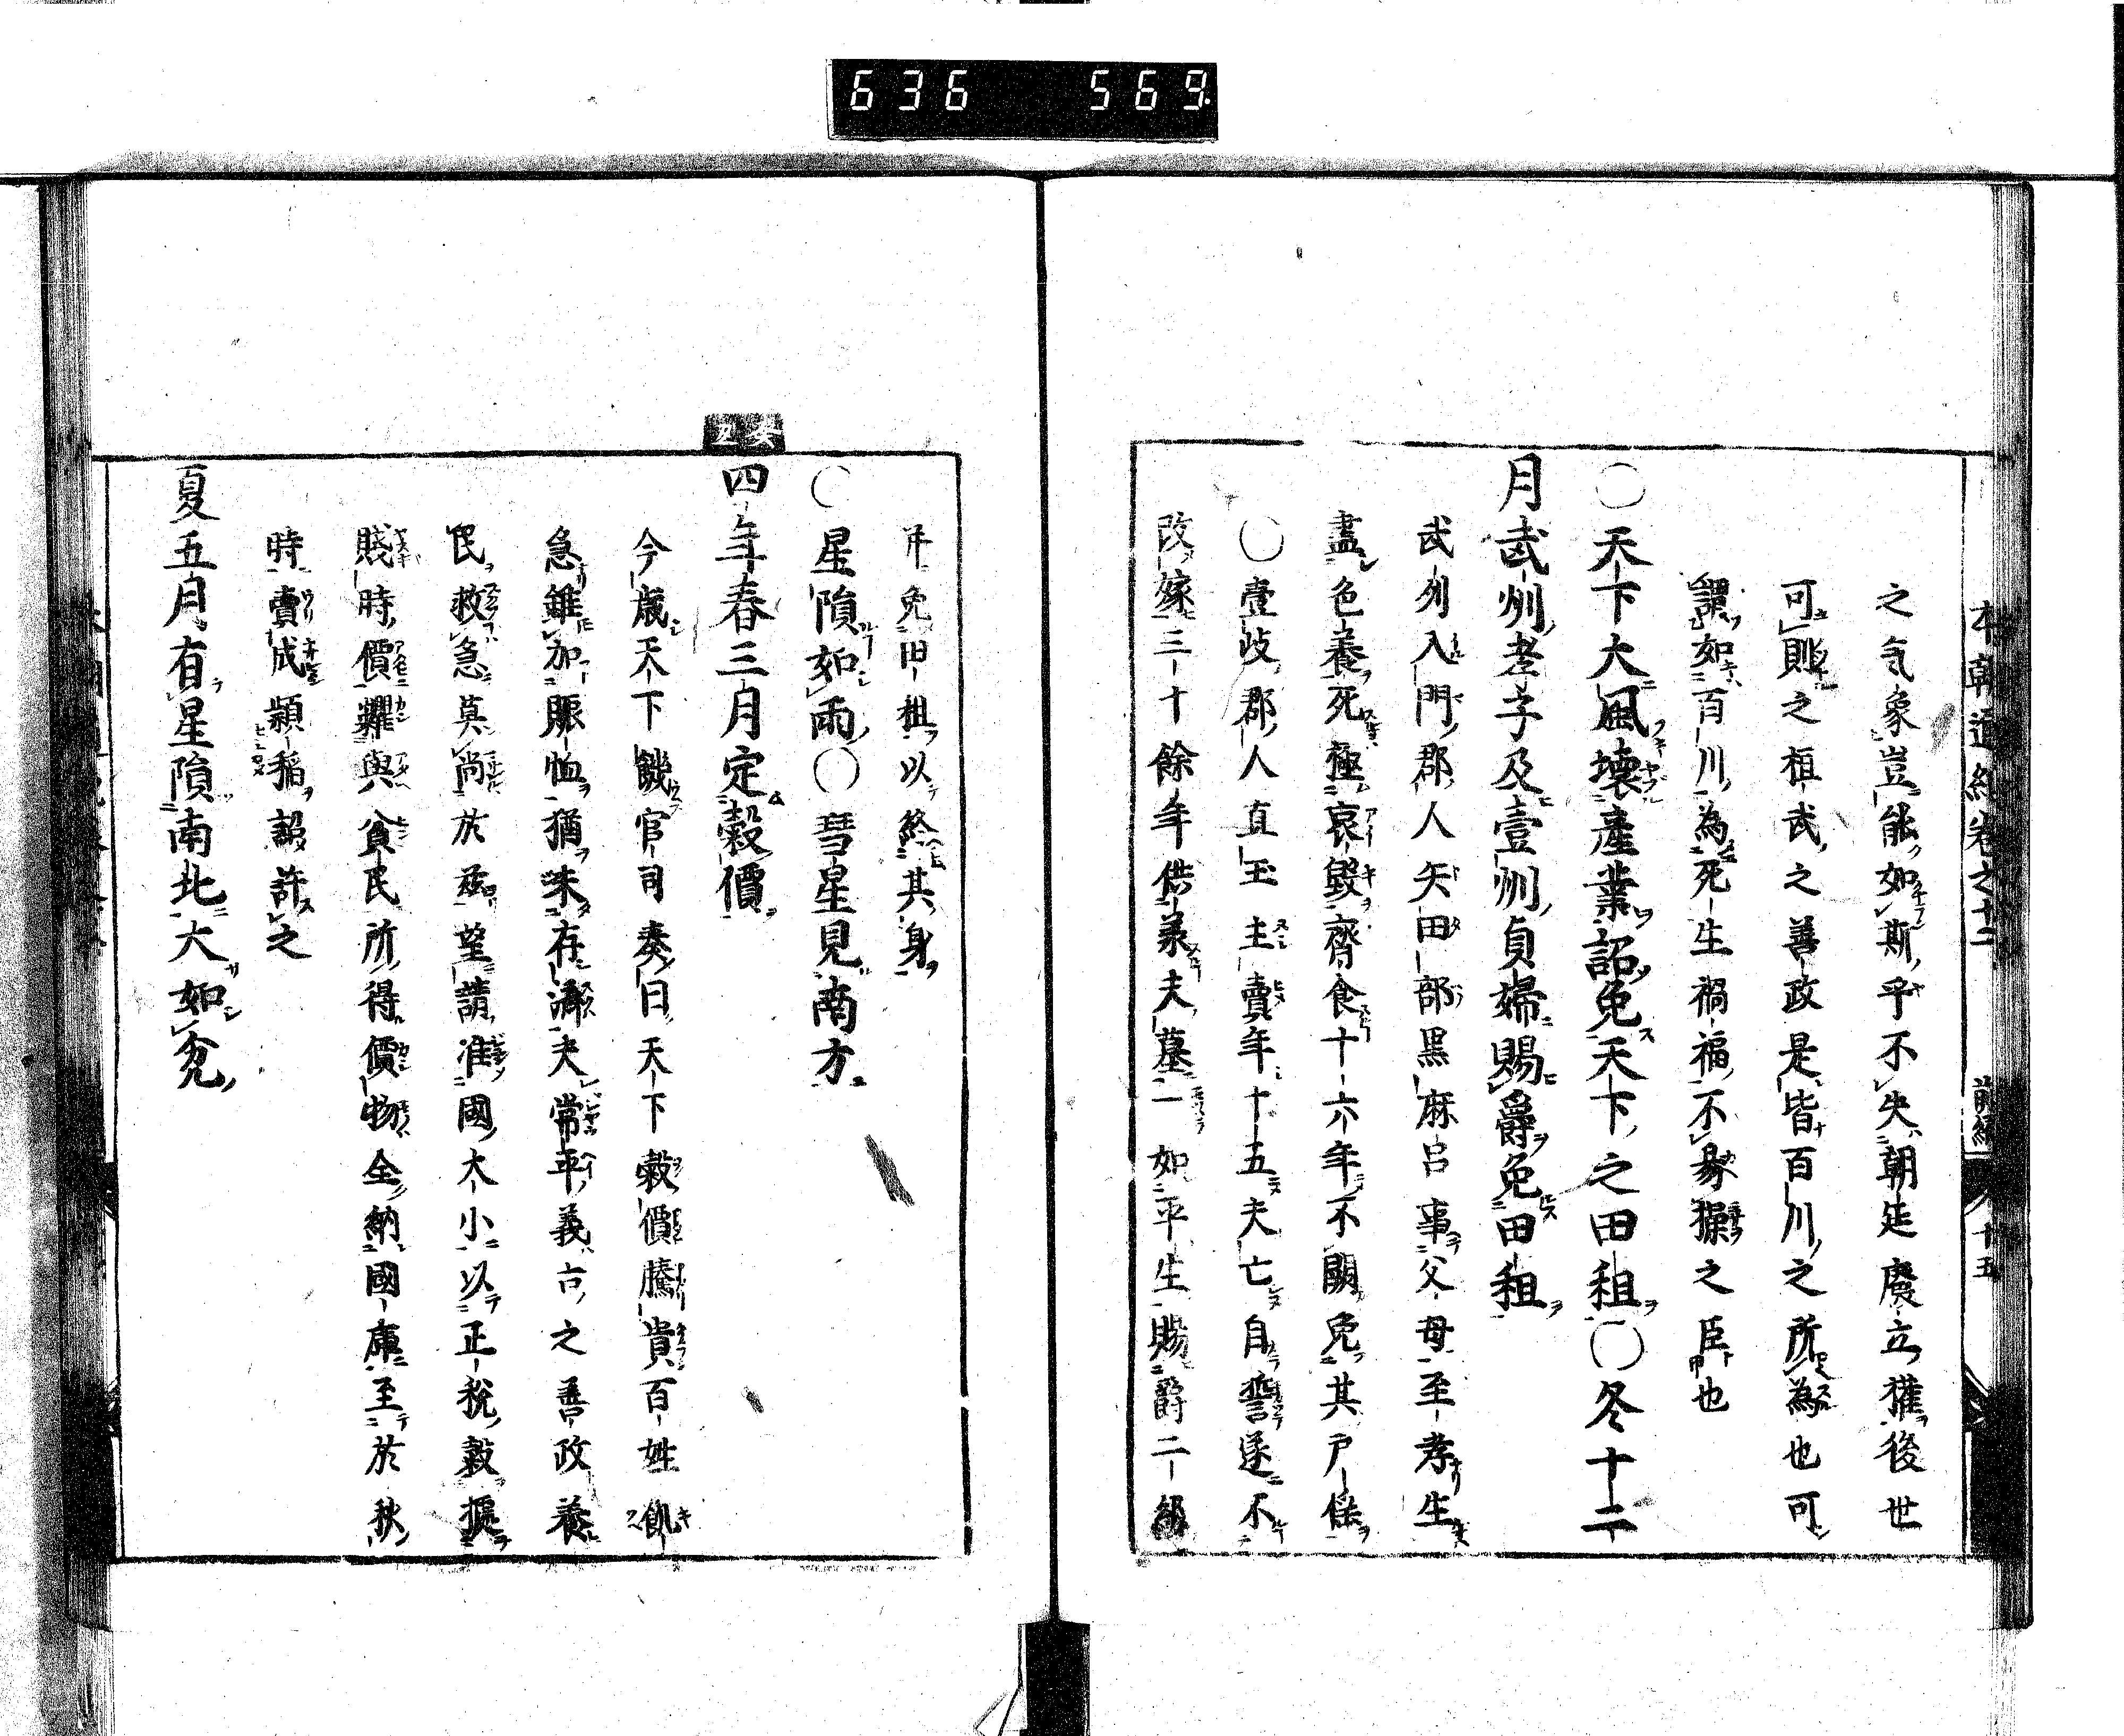 636 569
本朝通紀卷之十二 前編 十五
之気象豈能如斯乎不失朝廷廢立權後世
可則之桓武之善政是皆百川之所為也可
謂如百川為死生禍福不易操之臣也
〇天下大風壊産業詔免天下之田租〇冬十二
月武州孝子及壹州貞婦賜爵免田租
武列入門郡人矢田部黒麻呂事父母至孝生
盡色養死極哀毀齊食十六年不闕免其戸徭
〇壹岐郡人直玉主賣年十五夫亡自誓遂不
改嫁三十餘年供羕夫墓一如平生賜爵二級
并免田租以終其身
〇星隕如雨〇彗星見南方
四年春三月定穀價
今歳天下饑官司奏曰天下穀價騰貴百姓飢
急雖加賑恤猶未存濟夫常平義古之善政養
民救急莫尚於茲望請准國大小以正税穀據
賤時價糶與貧民所得價物全納國庫至於秋
時賣成頴稲詔許之
夏五月有星隕南北大如